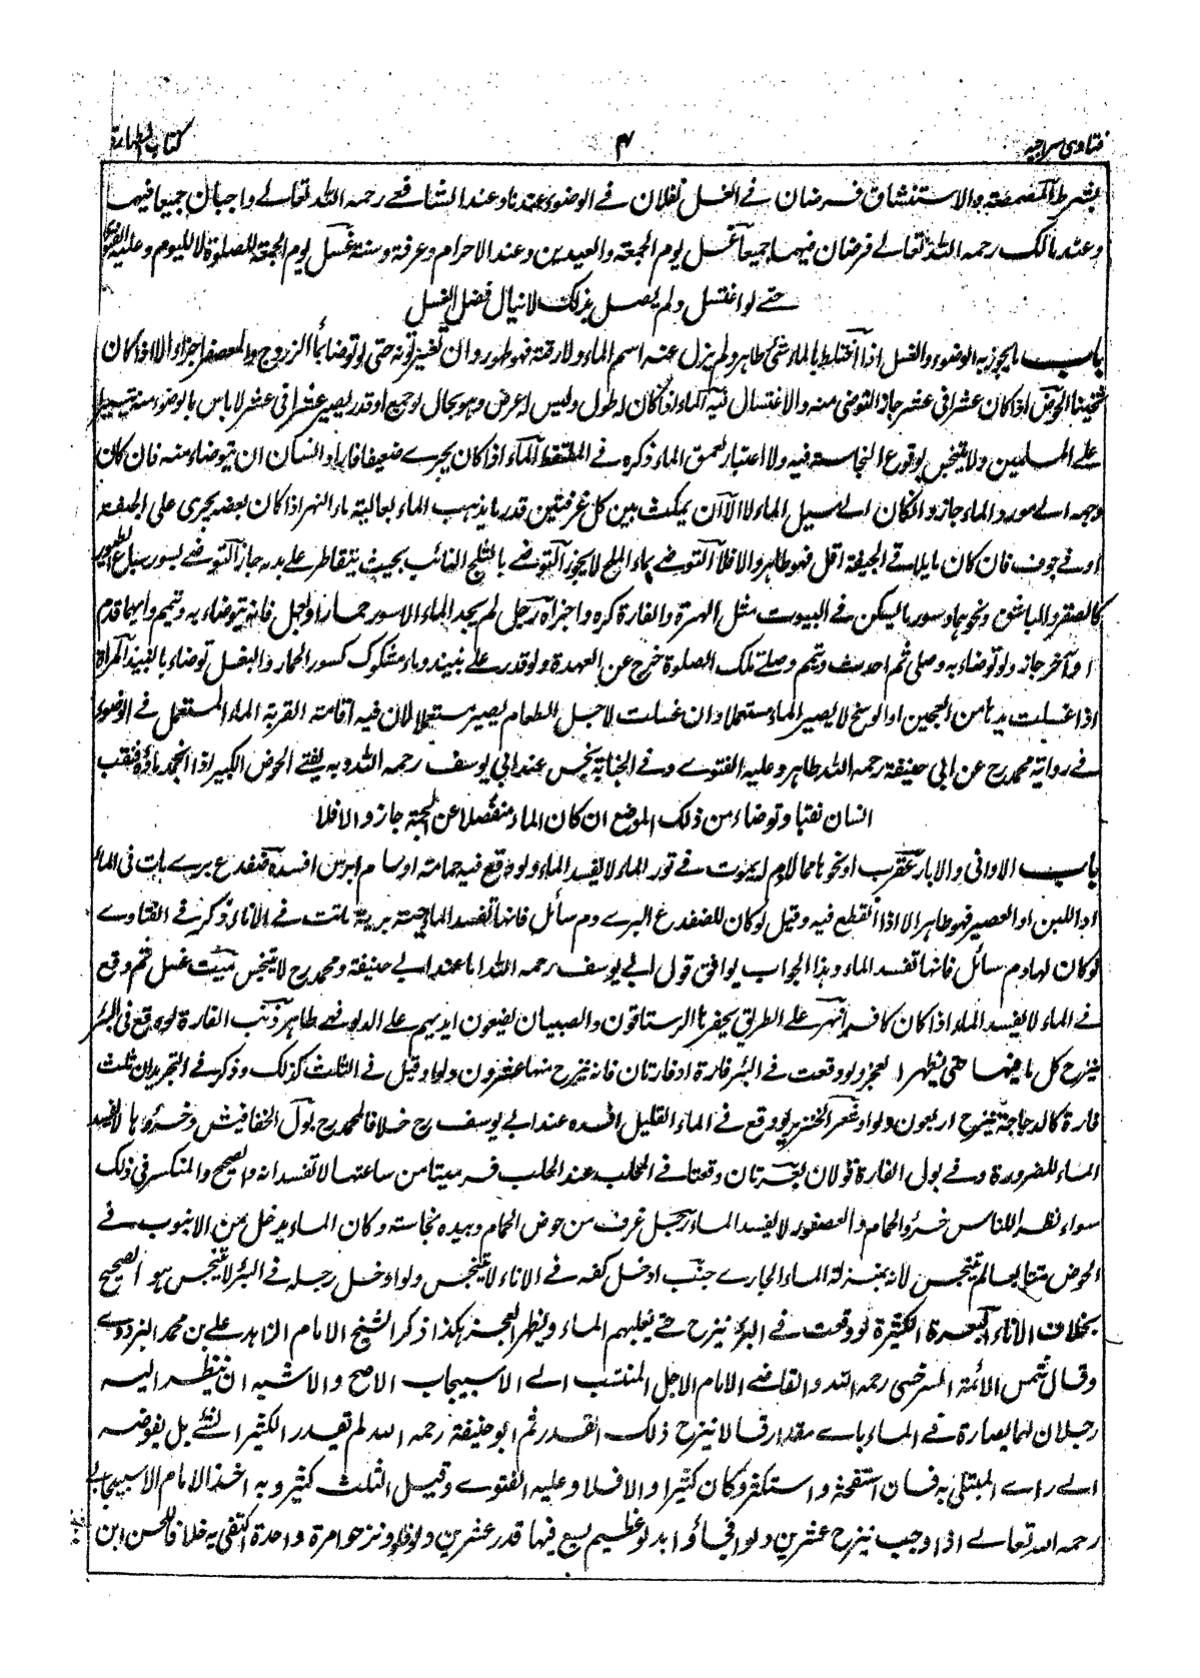 فتاوی سراجیہ ۴ کتاب الطہارة
بشرط المضمضة والاستنشاق فرضان في الغسل نفلان في الوضوء عندنا وعند الشافعي رحمه الله تعالى واجبان جميعا فيهما
وعند مالك رحمه الله تعالى فرضان فيهما جميعا غسل يوم الجمعة والعيدين وعند الاحرام وعرفة وسنة غسل يوم الجمعة للصلوة لا لليوم وعليه الفتوى
حتى لو اغتسل ولم يصل بذلك لا ينال فضل الغسل
باب ما يجوز به الوضوء والغسل اذا اختلط بالماء شئ طاهر ولم يزل عنه اسم الماء ولا رقته فهو طهور وان تغير لونه حتى لو توضأ بماء الزردج والعصفر اجزاه الا اذا كان
ثخينا الحوض اذا كان عشرا في عشر جاز التوضي منه والاغتسال فيه الماء اذا كان له طول وليس له عرض وهو بحال لو جمع او قدر يصير عشرا في عشر لا باس بالوضوء منه تيسيرا
على المسلمين ولا يتنجس بوقوع النجاسة فيه ولا اعتبار لعمق الماء ذكره في الملتقط الماء اذا كان يجري ضعيفا فاراد انسان ان يتوضاء منه فان كان
وجهه الى مورد الماء جاز وان كان الى مسيل الماء لا الا ان يمكث بين كل غرفتين قدر ما يذهب الماء بغسالته ماء النهر اذا كان بعضه يجري على الجيفة
او في جوف فان كان ما يلاقي الجيفة اقل فهو طاهر والا فلا التوضي بماء الملح لا يجوز التوضي بالثلج الذائب بحيث يتقاطر على بدنه جاز التوضي بسور سباع الطيور
كالصقر والباشق ونحوهما وسور ما يسكن في البيوت مثل الهرة والفارة كره واجزاه رجل لم يجد الماء الا سور حمار او بغل فانه يتوضاء به ويتيمم وايهما قدم
او آخر جاز ولو توضاء به وصلى ثم احدث وتيمم وصلى تلك الصلوة خرج عن العهدة ولو قدر على نبيذ وماء مشكوك كسور الحمار والبغل توضاء بالنبيذ المراة
اذا غسلت يدها من العجين او الوسخ لا يصير الماء مستعملا وان غسلت لاجل الطعام يصير مستعملا لان فيه اقامة القربة الماء المستعمل في الوضوء
في رواية محمد رح عن ابي حنيفة رحمه الله طاهر وعليه الفتوى وفي الجنابة نجس عند ابي يوسف رحمه الله وبه يفتى الحوض الكبير اذا انجمد ماؤه فنقب
انسان نقبا وتوضاء من ذلك الموضع ان كان الماء منفصلا عن الجمد جاز والا فلا
باب الاواني والابار عقرب او نحوها مما لا دم له يموت في تور الماء لا يفسد الماء ولو وقع فيه حمامة او سام ابرص افسده ضفدع بري مات في الماء
او اللبن او العصير فهو طاهر الا اذا انقطع فيه وقيل لو كان للضفدع البري دم سائل فانها تفسد الماء حية برية ماتت في الاناء ذكر في الفتاوى
لو كان لها دم سائل فانها تفسد الماء وهذا الجواب يوافق قول ابي يوسف رحمه الله اما عند ابي حنيفة ومحمد رح لا يتنجس ميت غسل ثم وقع
في الماء لا يفسد الماء الا اذا كان كافرا نهر على الطريق يحفرها الرستاقون والصبيان يضعون ايديهم على الدلو فهي طاهر ذنب الفارة لو وقع في البئر
ينزح كل ما فيها حتى يظهر العجز ولو وقعت في البئر فارة او فارتان فانه ينزح منها عشرون دلوا وقيل في الثلث كذلك وذكر في التجريد ان ثلث
فارة كالدجاجة ينزح اربعون دلوا شعر الخنزير لو وقع في الماء القليل افسده عند ابي يوسف رح خلافا لمحمد رح بول الخفافيش وخرؤها لا يفسد
الماء للضرورة وفي بول الفارة قولان بعرتان وقعتا في المحلب عند الحلب فرميتا من ساعتهما لا تفسد انه والصحيح والمنكسر في ذلك
سواء نظرا للناس خرؤ الحمام والعصفور لا يفسد الماء رجل غرف من حوض الحمام وبيده نجاسة وكان الماء يدخل من الانبوب في
الحوض متتابعا لم يتنجس لانه بمنزلة الماء الجاري جنب ادخل كفه في الاناء لا يتنجس ولو ادخل رجله في البئر لا يتنجس هو الصحيح
بخلاف الاناء البعرة الكثيرة لو وقعت في البئر ينزح حتى يغلبهم الماء ويظهر العجز هكذا ذكر الشيخ الامام الزاهد علي بن محمد البزدوي
وقال شمس الائمة السرخسي رحمه الله والقاضي الامام الاجل المنتسب الى الاسبيجاب الاصح والاشبه ان ينظر اليه
رجلان لهما بصارة في الماء باي مقدار قالا ينزح ذلك القدر ثم ابو حنيفة رحمه الله لم يقدر الكثير بشئ بل يفوضه
الى راي المبتلى به فان استفحشه واستكثره كان كثيرا والا فلا وعليه الفتوى وقيل الثلث كثير وبه اخذ الامام الاسبيجابي
رحمه الله تعالى اذا وجب نزح عشرين دلوا فجاؤا بدلو عظيم يسع فيها قدر عشرين دلوا ونزحوا مرة واحدة اكتفى به خلافا للحسن ابن